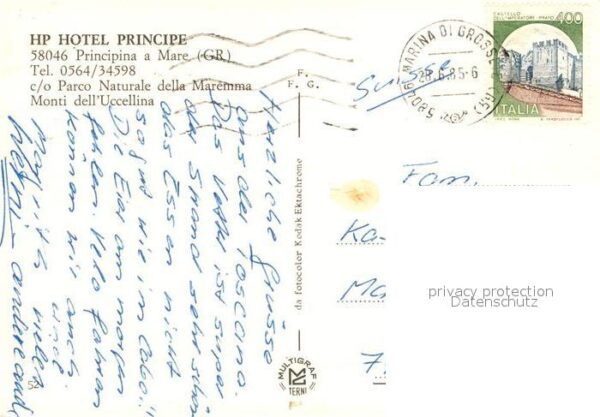 HP HOTEL PRINCIPE
58046 Principina a Mare (GR)
Tel. 0564/34598
c/o Parco Naturale della Maremma
Monti dell'Uccellina
F.
F. G.
58046 MARINA DI GROSS
26.6.85-6
(GR)
CASTELLO
DELL'IMPERATORE · PRATO
400
ITALIA
Suisse
Herzliche Grüsse
aus der Toscana.
Das Wetter ist super
der Strand sehr schön
das Essen nicht
so gut wie im Cabo.
Die Eier am morgen
fehlen. Velo fahren
können wir auch.
und
vielen
da fotocolor Kodak Ektachrome
Fam.
Ka
Ma
7
privacy protection
Datenschutz
MULTIGRAF
TERNI
52